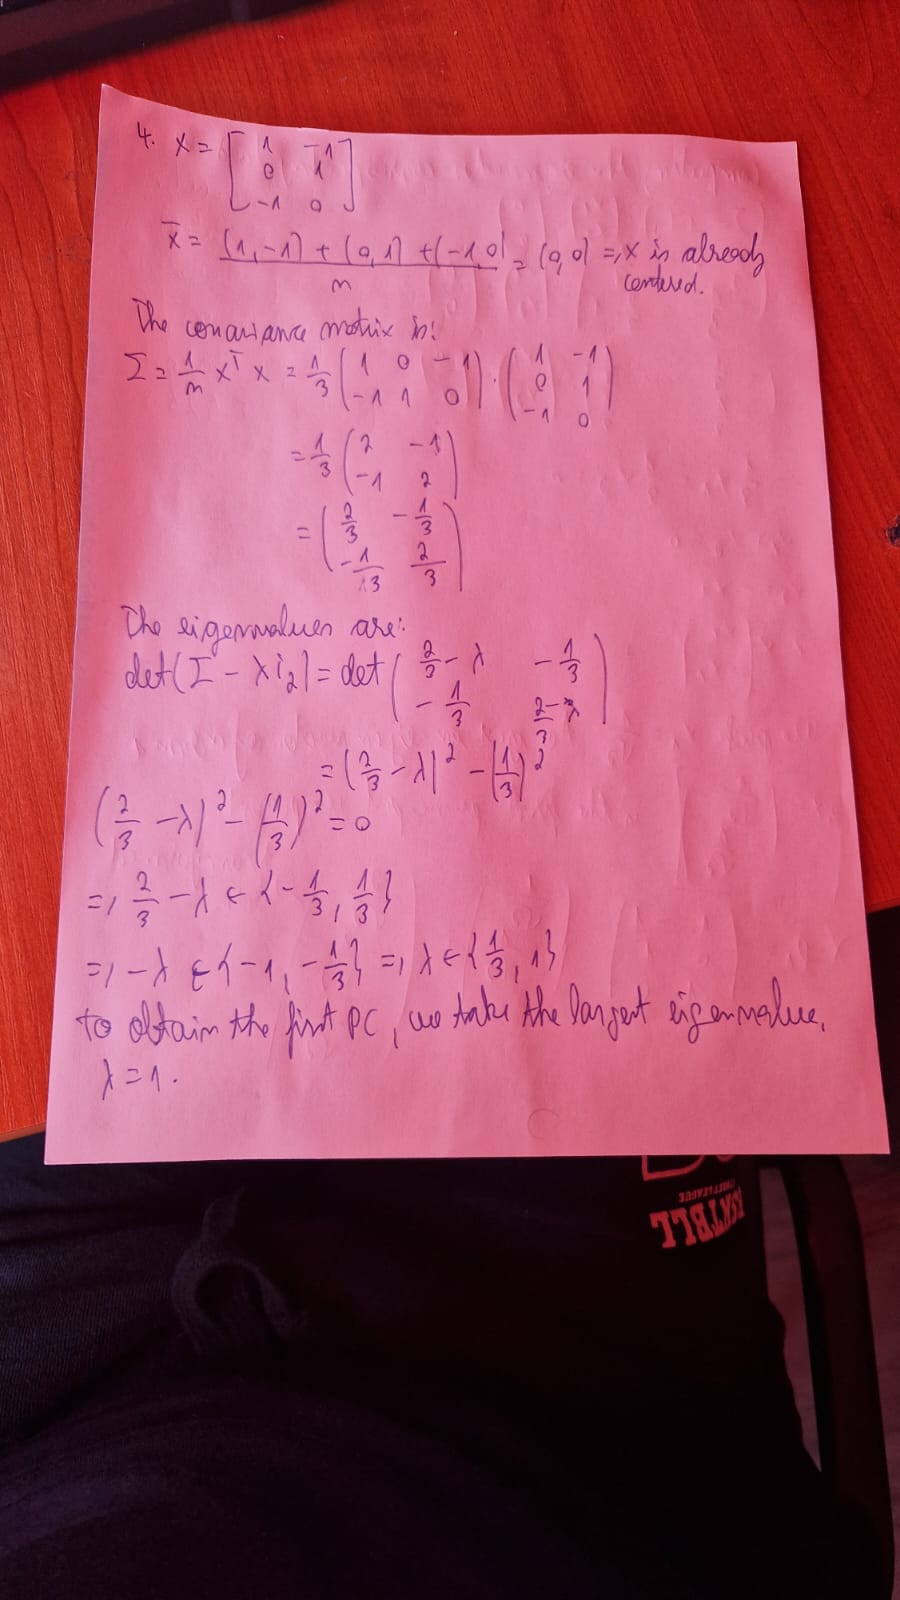 4. X = [ 1 -1
0 1
-1 0 ]
x̄ = (1,-1) + (0,1) + (-1,0) / n = (0,0) => X is already
centered.
The covariance matrix is:
Σ = 1/n X^T X = 1/3 ( 1 0 -1 ; -1 1 0 ) · ( 1 -1 ; 0 1 ; -1 0 )
= 1/3 ( 2 -1 ; -1 2 )
= ( 2/3 -1/3 ; -1/3 2/3 )
The eigenvalues are:
det(Σ - λI₂) = det ( 2/3 - λ -1/3 ; -1/3 2/3 - λ )
= (2/3 - λ)² - (1/3)²
(2/3 - λ)² - (1/3)² = 0
=> 2/3 - λ ∈ {-1/3, 1/3}
=> -λ ∈ {-1, -1/3} => λ ∈ {1/3, 1}
to obtain the first PC, we take the largest eigenvalue,
λ = 1.